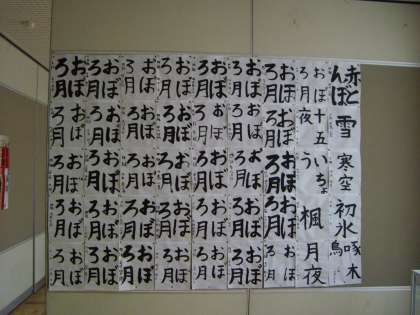 赤と
んぼ
雪
寒空
初氷
啄木
鳥
おぼ
ろ月
十五
夜
いちょ
う
楓
月夜
おぼ
ろ月
おぼ
ろ月
おぼ
ろ月
おぼ
ろ月
おぼ
ろ月
おぼ
ろ月
おぼ
ろ月
おぼ
ろ月
おぼ
ろ月
おぼ
ろ月
おぼ
ろ月
おぼ
ろ月
おぼ
ろ月
おぼ
ろ月
おぼ
ろ月
おぼ
ろ月
おぼ
ろ月
おぼ
ろ月
おぼ
ろ月
おぼ
ろ月
おぼ
ろ月
おぼ
ろ月
おぼ
ろ月
おぼ
ろ月
おぼ
ろ月
おぼ
ろ月
おぼ
ろ月
おぼ
ろ月
おぼ
ろ月
おぼ
ろ月
おぼ
ろ月
おぼ
ろ月
おぼ
ろ月
おぼ
ろ月
おぼ
ろ月